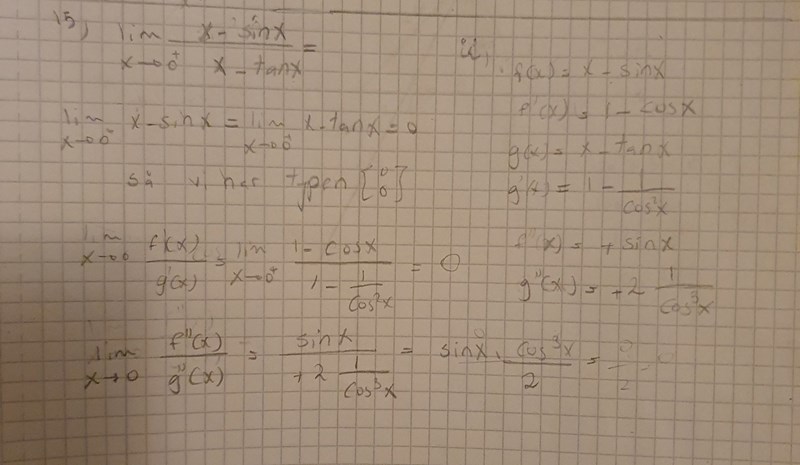 15) lim x→0⁺ (x - sinx)/(x - tanx) =
lim x→0⁺ x - sinx = lim x→0⁺ x - tanx = 0
så vi har typen [0/0]
lim x→0 f'(x)/g'(x) = lim x→0⁺ (1 - cosx)/(1 - 1/cos²x) = 0
lim x→0 f''(x)/g''(x) = sinx/(+2 1/cos³x) = sinx · cos³x/2 = 0/2 = 0
f(x) = x - sinx
f'(x) = 1 - cosx
g(x) = x - tanx
g'(x) = 1 - 1/cos²x
f''(x) = + sinx
g''(x) = +2 1/cos³x